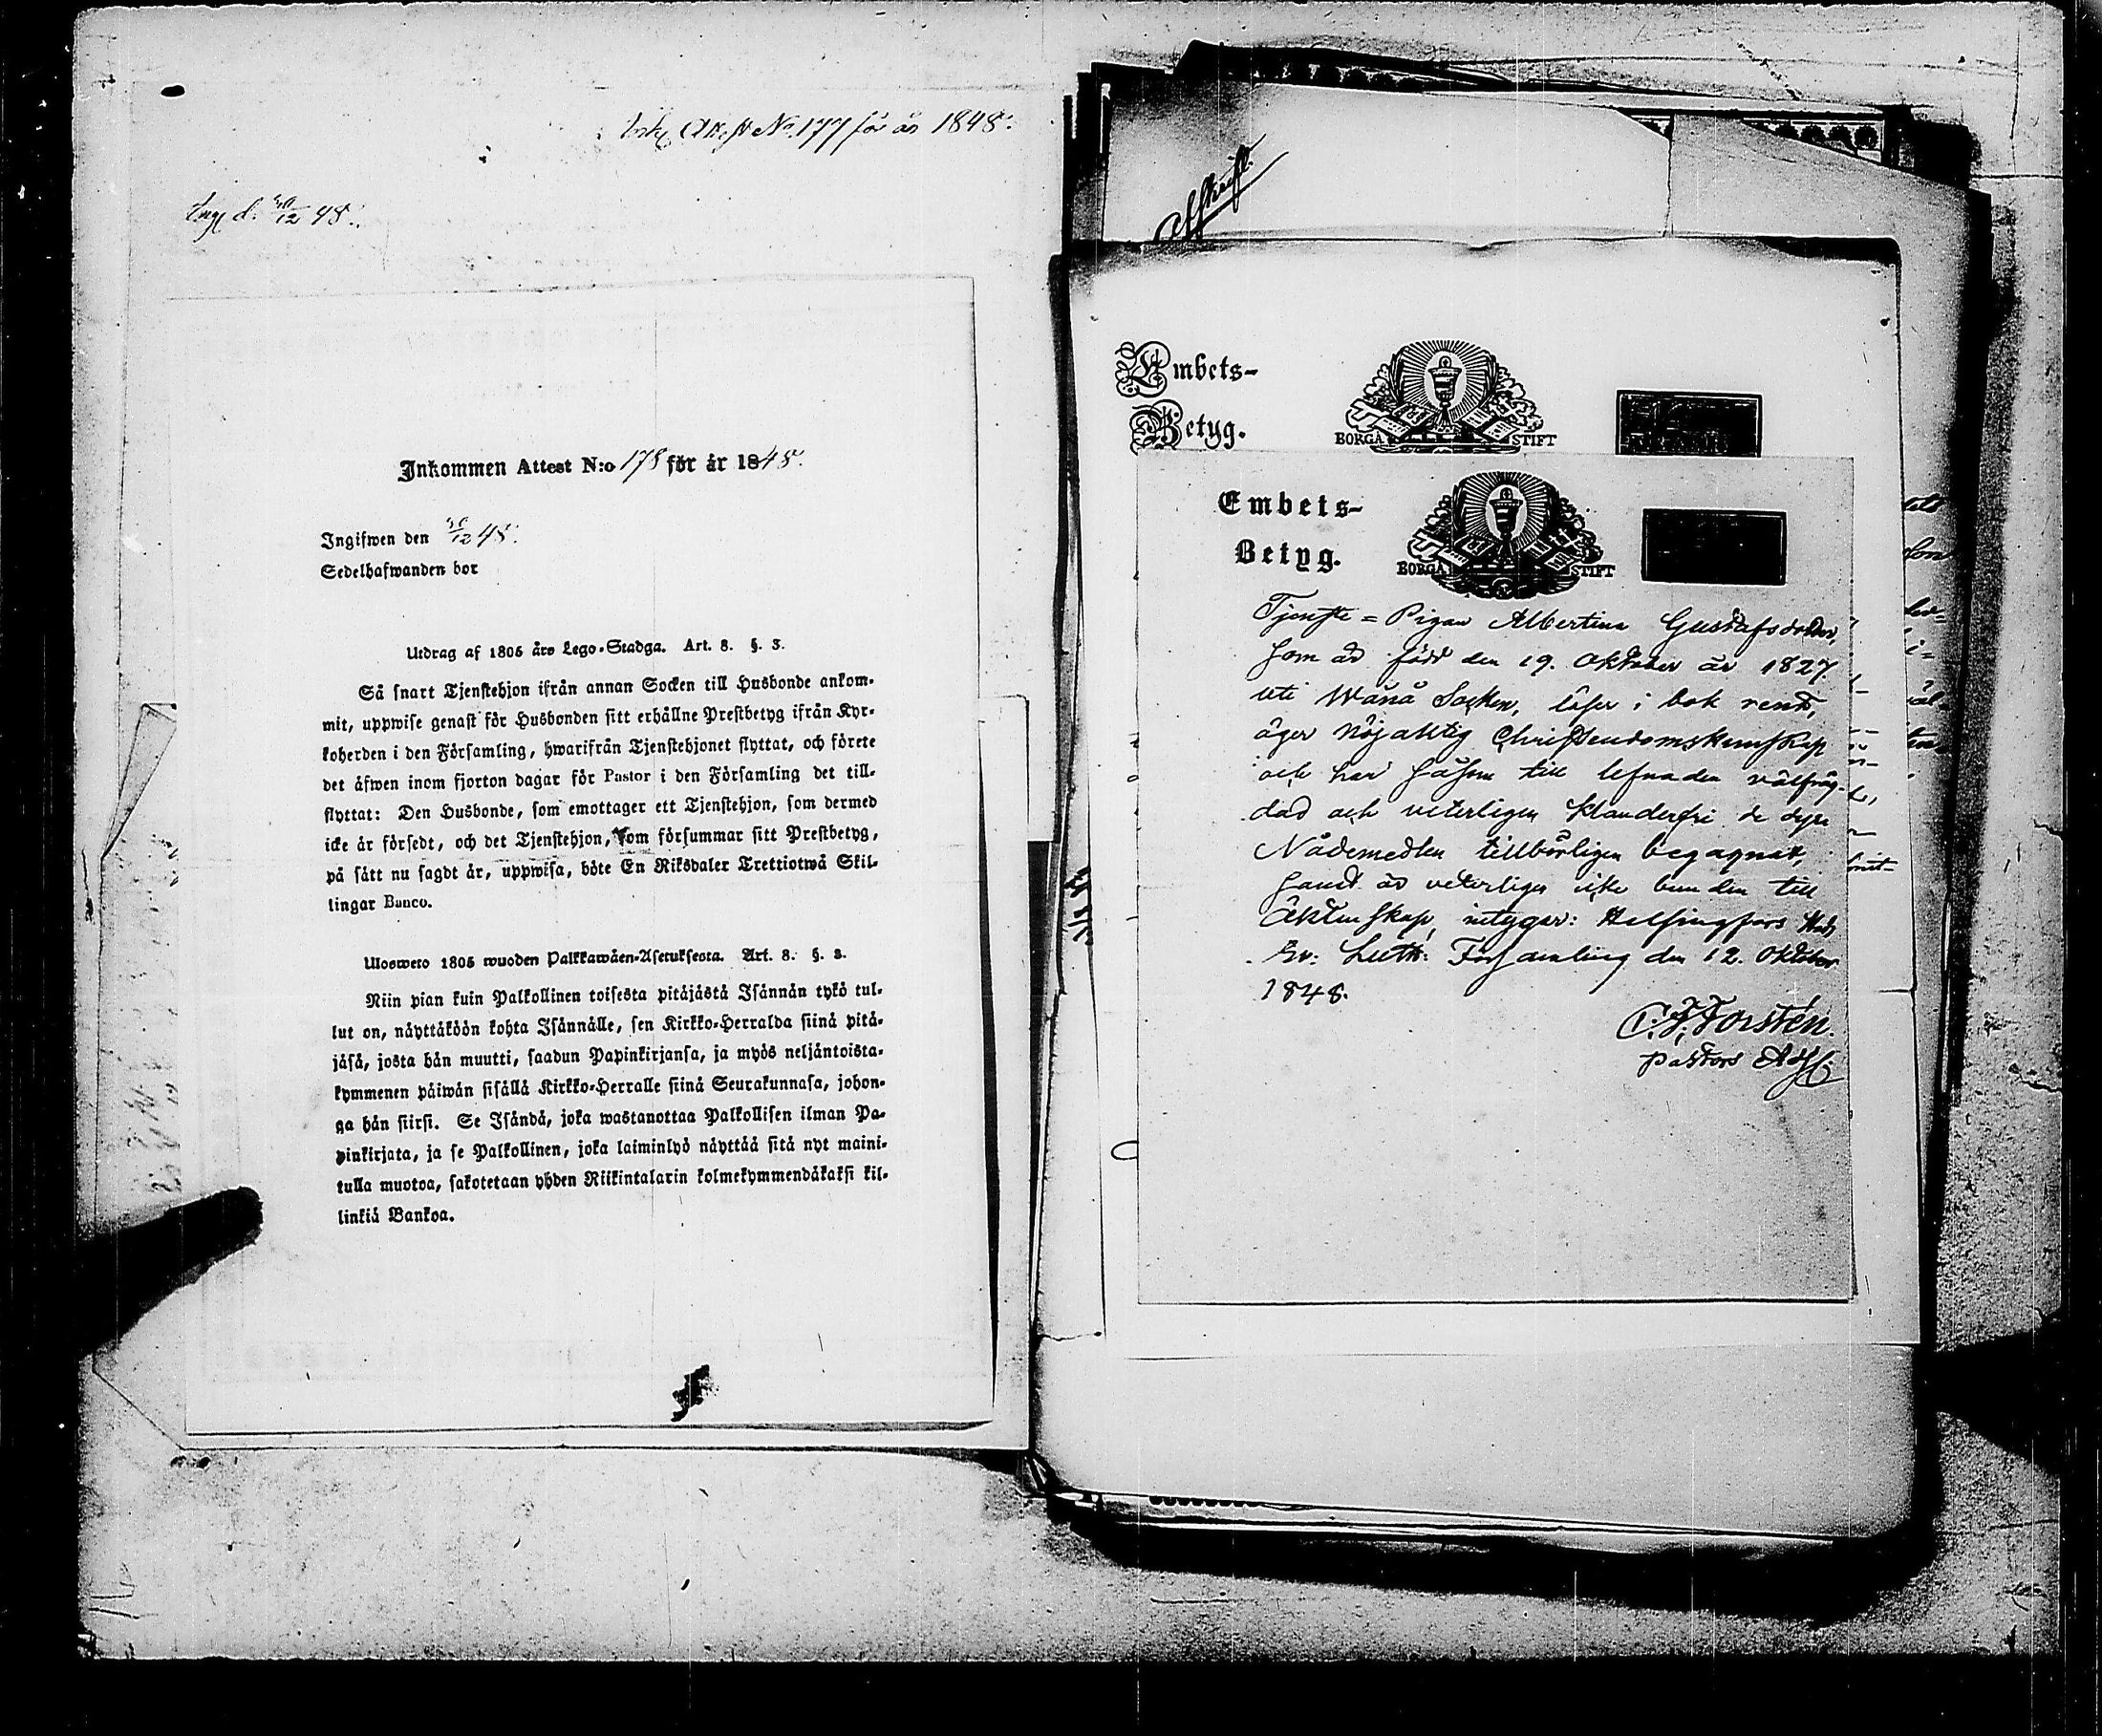 Attest No. 177 för år 1848.
d. 30/12 48.
Inkommen Attest N:o 178 för år 1848.
Ingifwen den 30/12 48.
Sedelhafwanden bor
Utdrag af 1805 års Lego-Stadga. Art. 8. §. 3.
Så snart Tjenstehjon ifrån annan Socken till Husbonde ankom-
mit, uppwise genast för Husbonden sitt erhållne Prestbetyg ifrån Kyr-
koherden i den Församling, hwarifrån Tjenstehjonet flyttat, och förete
det äfwen inom fjorton dagar för Pastor i den Församling det till-
flyttat: Den Husbonde, som emottager ett Tjenstehjon, som dermed
icke är försedt, och det Tjenstehjon, som försummar sitt Prestbetyg,
på sätt nu sagdt är, uppwisa, böte En Riksdaler Trettiotwå Skil-
lingar Banco.
Ulosweto 1805 wuoden Palkkawäen-Asetuksesta. Art. 8. §. 3.
Niin pian kuin Palkollinen toisesta pitäjästä Isännän tykö tul-
lut on, näyttäköön kohta Isännälle, sen Kirkko-Herralda siinä pitä-
jäsä, josta hän muutti, saadun Papinkirjansa, ja myös neljäntoista-
kymmenen päiwän sisällä Kirkko-Herralle siinä Seurakunnasa, johon-
ga hän siirsi. Se Isändä, joka wastanottaa Palkollisen ilman Pa-
pinkirjata, ja se Palkollinen, joka laiminlyö näyttää sitä nyt maini-
tulla muotoa, sakotetaan yhden Riikintalarin kolmekymmendäkaksi kil-
linkiä Bankoa.
Afskrift.
Embets-
Betyg.
BORGÅ STIFT
Embets-
Betyg.
BORGÅ STIFT
Tjenste=Pigan Albertina Gustafsdotter,
som är född den 19. Oktober år 1827.
uti Wånå Socken, läser i bok rent,
äger nöjaktig Christendomskunskap
och har såsom till lefnaden välfräg-
dad och veterligen klanderfri de dyra
Nådemedlen tillbörligen begagnat,
samt är veterligen icke bunden till
Äktenskap, intygar: Helsingfors
Ev: Luth: Församling den 12. Oktober
1848.
Forstén.
Pastors Adj.